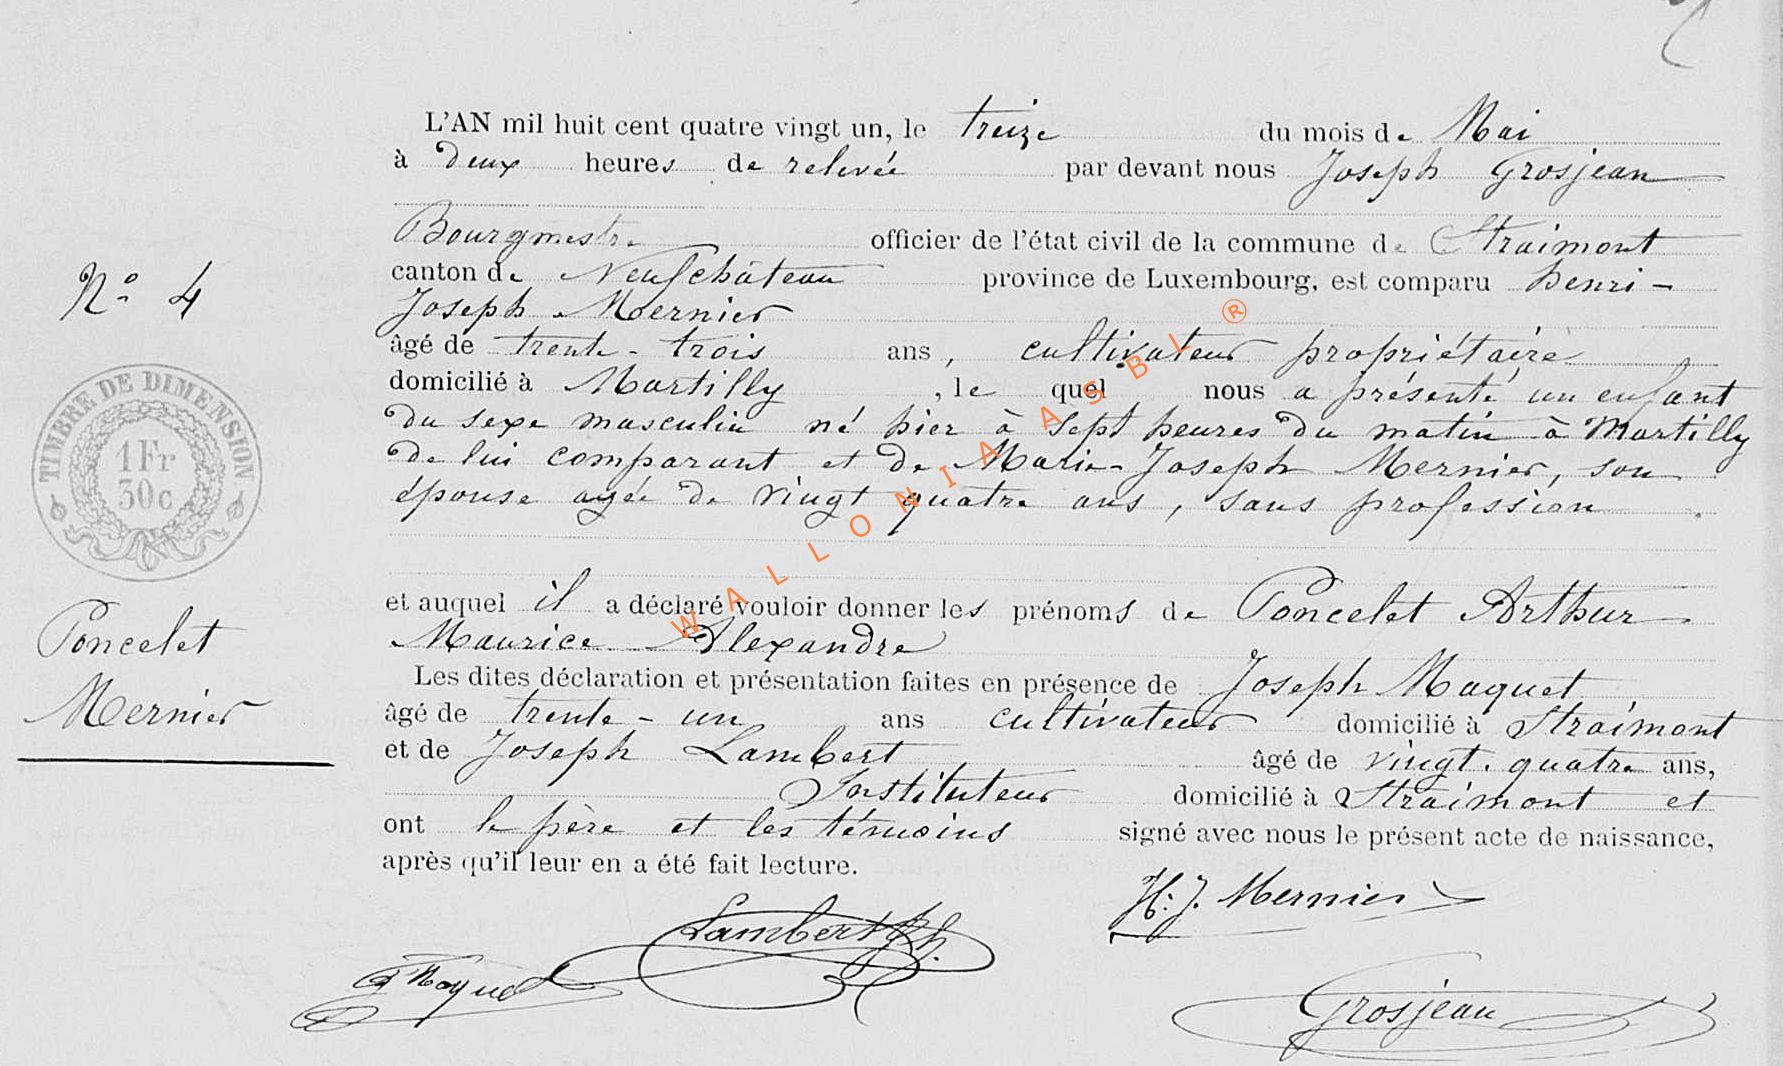 L'AN mil huit cent quatre vingt un, le treize du mois de Mai
à deux heures de relevée par devant nous Joseph Grosjean
Bourgmestre officier de l'état civil de la commune de Straimont
canton de Neufchâteau province de Luxembourg, est comparu henri-
Joseph Mernier
âgé de trente-trois ans, cultivateur propriétaire
domicilié à Martilly, le quel nous a présenté un enfant
du sexe masculin né hier à Sept heures du matin à Martilly
de lui comparant et de Marie-Joseph Mernier, son
épouse agée de vingt quatre ans, sans profession
et auquel il a déclaré vouloir donner les prénoms de Poncelet Arthur
Maurice Alexandre
Les dites déclaration et présentation faites en présence de Joseph Maquet
âgé de trente-un ans cultivateur domicilié à Straimont
et de Joseph Lambert âgé de vingt-quatre ans,
Instituteur domicilié à Straimont et
ont le père et les témoins signé avec nous le présent acte de naissance,
après qu'il leur en a été fait lecture.
H. J. Mernier
Lambert Jh.
J Maquet
Grosjean
No. 4
TIMBRE DE DIMENSION
1 Fr
30 c
Poncelet
Mernier
WALLONIA ASBL ®